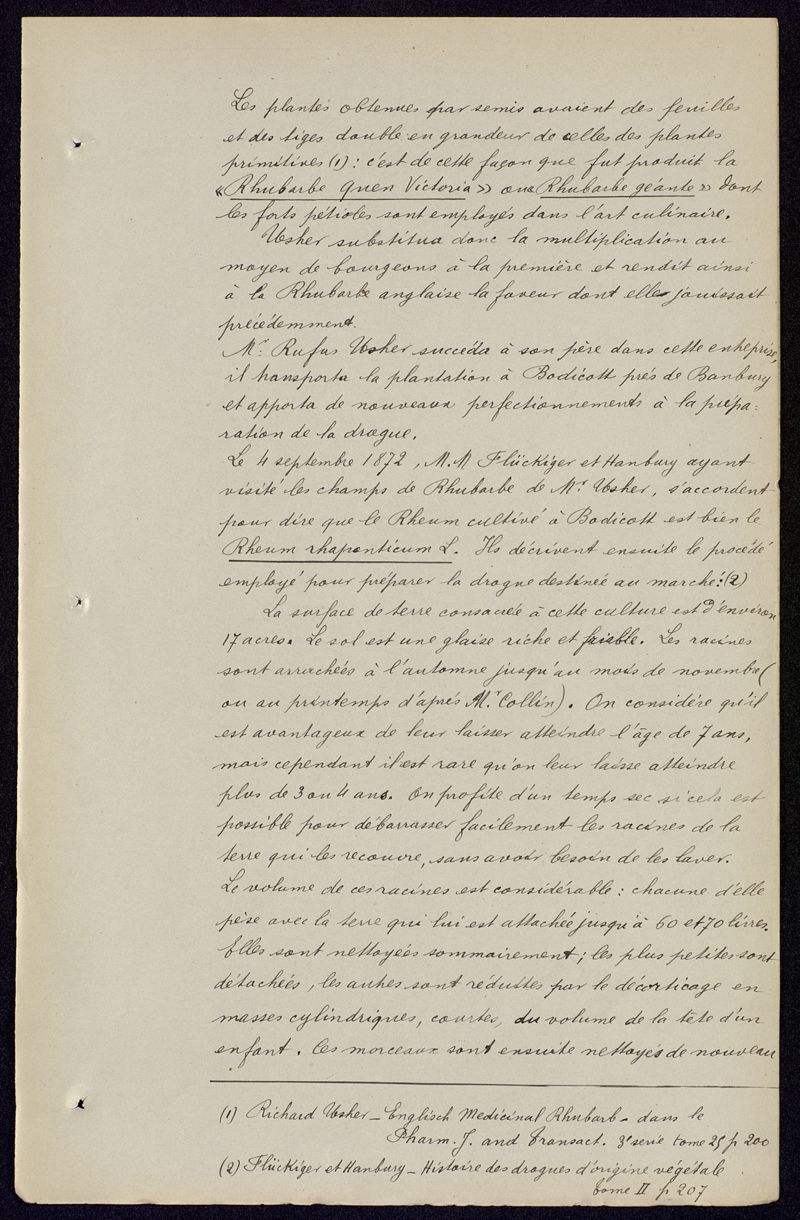 Les plantes obtenues par semis avaient des feuilles
et des tiges double en grandeur de celles des plantes
primitives (1) : c'est de cette façon que fut produit la
« Rhubarbe Quen Victoria » ou « Rhubarbe géante » dont
les forts pétioles sont employés dans l'art culinaire.
Usher substitua donc la multiplication au
moyen de bourgeons à la première et rendit ainsi
à la Rhubarbe anglaise la faveur dont elle jouissait
précédemment.
Mr. Rufus Usher succéda à son père dans cette entreprise,
il transporta la plantation à Bodicott près de Banbury
et apporta de nouveaux perfectionnements à la prépa-
ration de la drogue.
Le 4 septembre 1872, M.M Flückiger et Hanbury ayant
visité les champs de Rhubarbe de Mr Usher, s'accordent
pour dire que le Rheum cultivé à Bodicott est bien le
Rheum rhaponticum L. Ils décrivent ensuite le procédé
employé pour préparer la drogue destinée au marché : (2)
La surface de terre consacrée à cette culture est d'environ
17 acres. Le sol est une glaise riche et friable. Les racines
sont arrachées à l'automne jusqu'au mois de novembre (
ou au printemps d'après Mr Collin). On considére qu'il
est avantageux de leur laisser atteindre l'âge de 7 ans,
mais cependant il est rare qu'on leur laisse atteindre
plus de 3 ou 4 ans. On profite d'un temps sec si cela est
possible pour débarrasser facilement les racines de la
terre qui les recouvre, sans avoir besoin de les laver.
Le volume de ces racines est considérable : chacune d'elle
pèse avec la terre qui lui est attachée jusqu'à 60 et 70 livres.
Elles sont nettoyées sommairement ; les plus petites sont
détachées, les autres sont réduites par le décorticage en
masses cylindriques, courtes, du volume de la tete d'un
enfant. Ces morceaux sont ensuite nettoyés de nouveau
(1) Richard Usher _ Englisch Medicinal Rhubarb - dans le
Pharm. J. and Transact. 3e serie tome 25 p 200
(2) Flückiger et Hanbury _ Histoire des drogues d'origine végétale
tome II p. 207